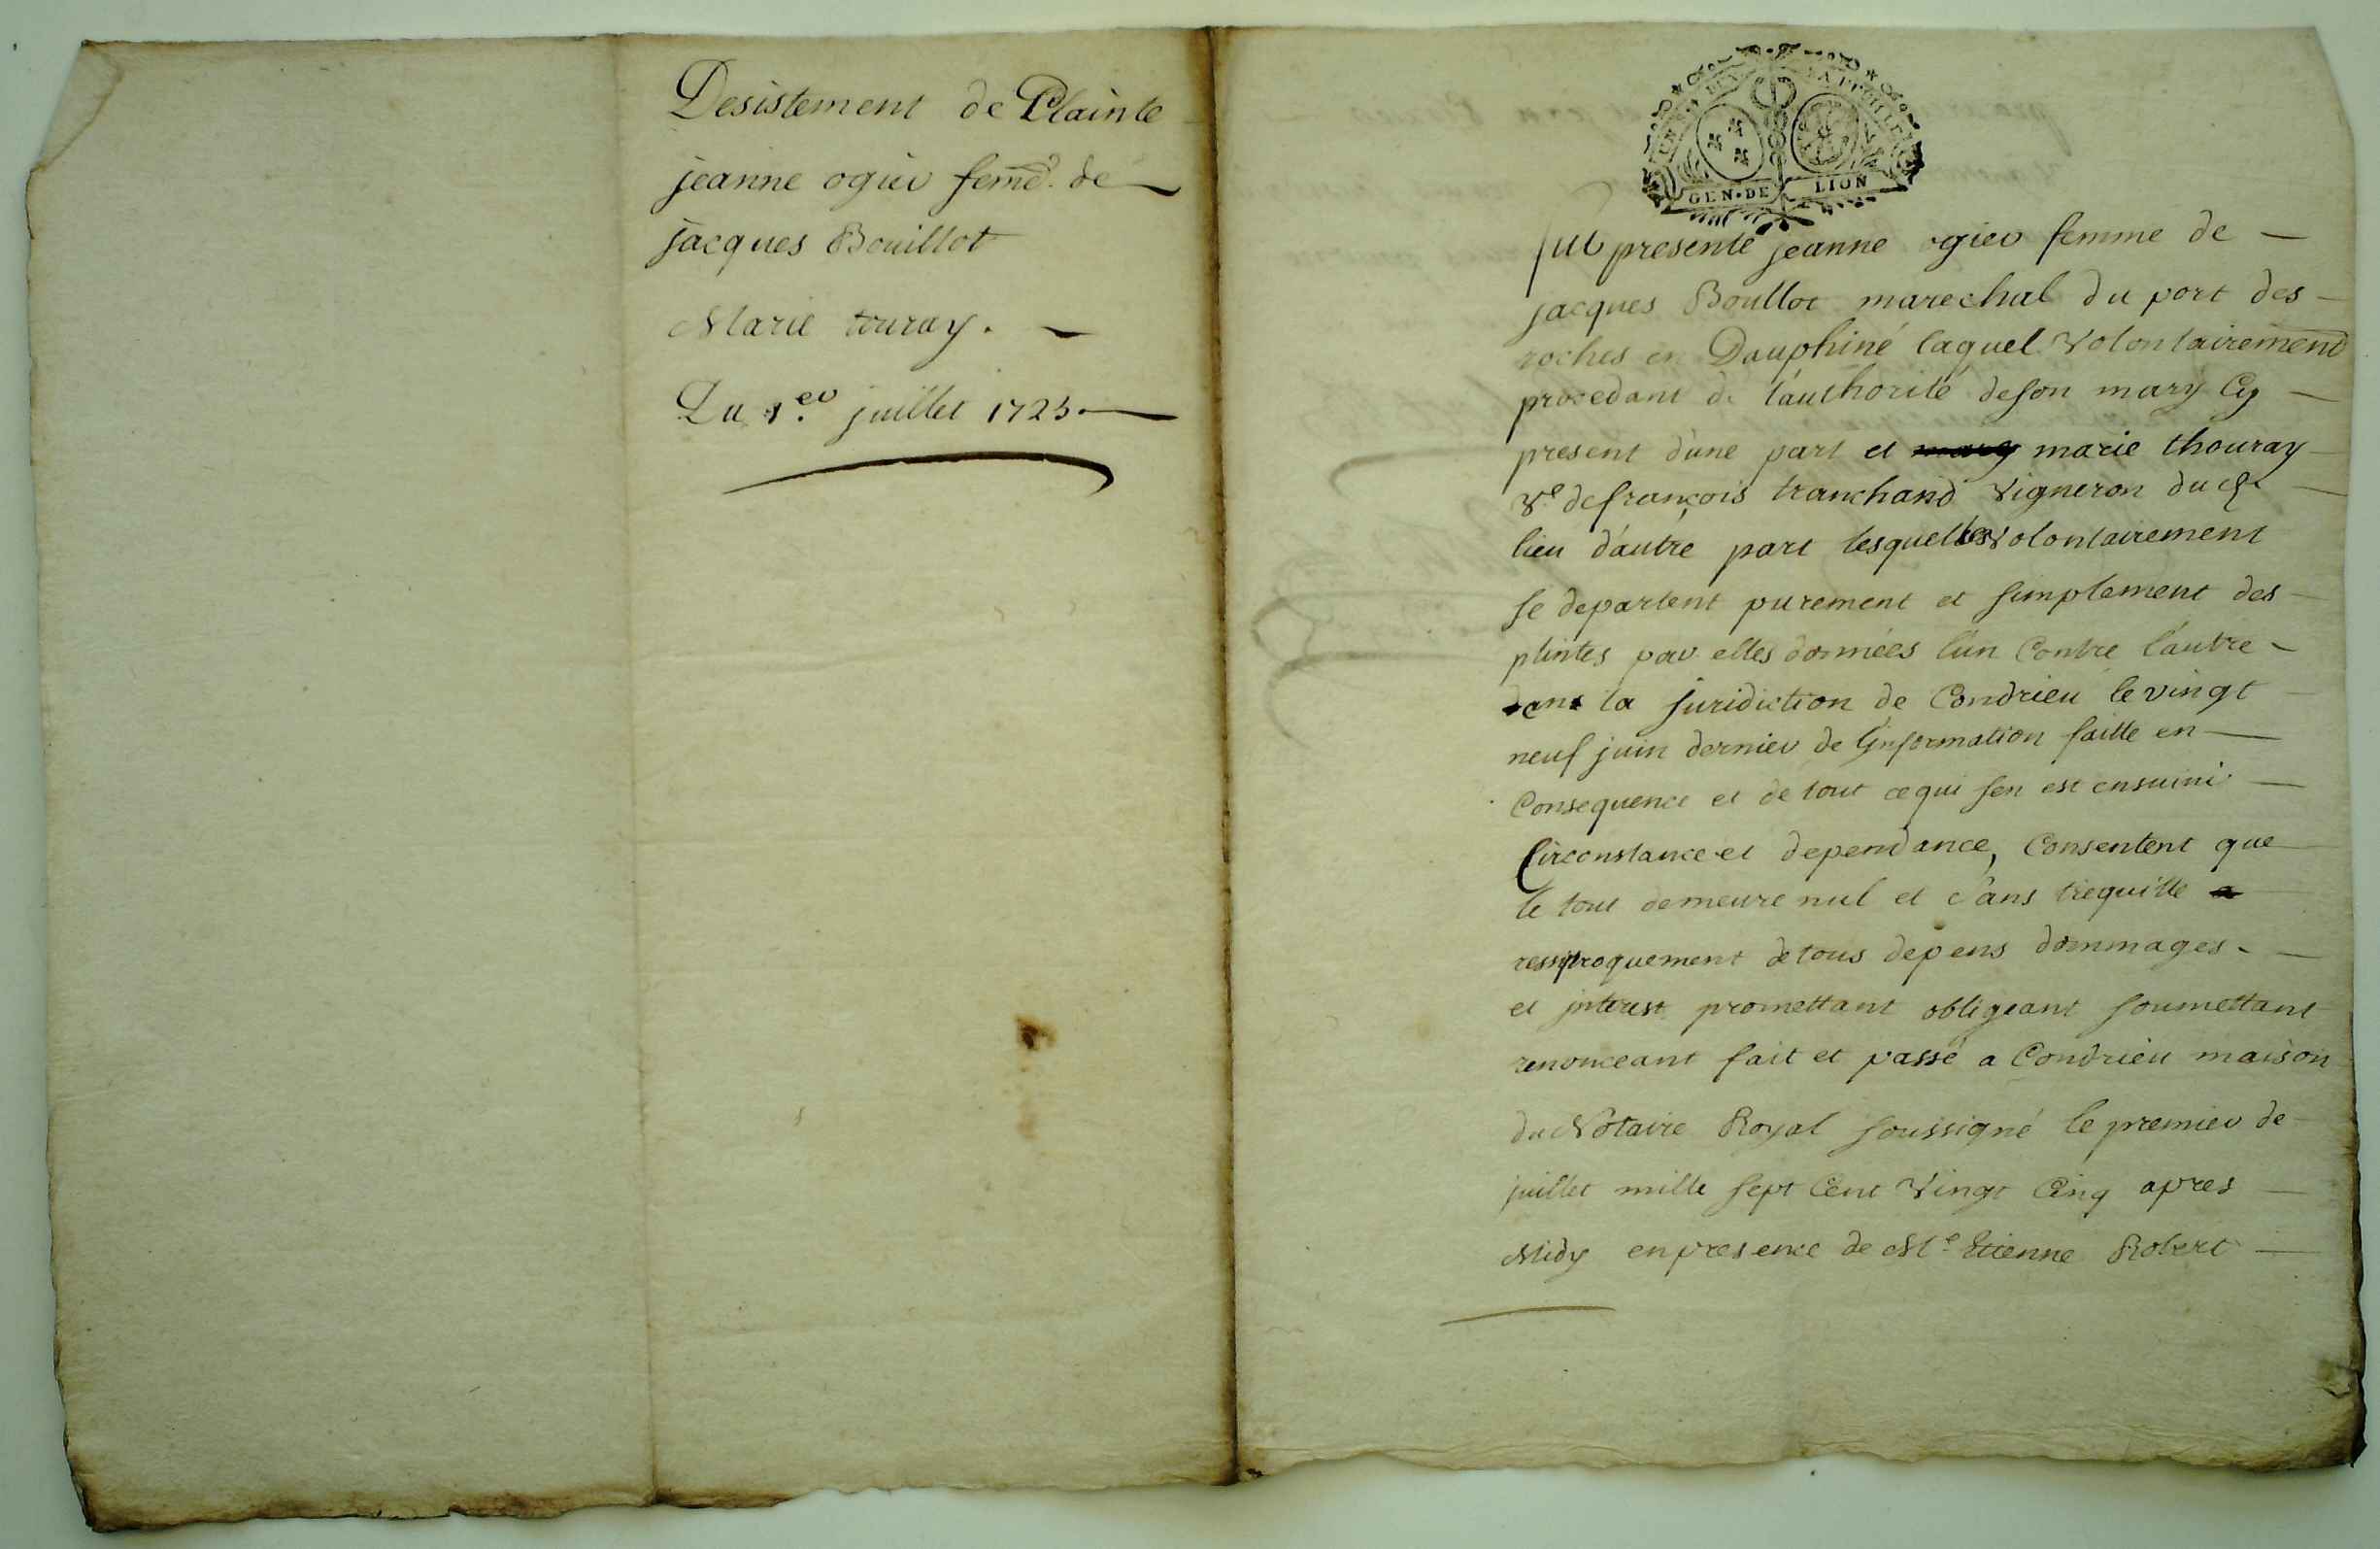 Desistement de Plainte
jeanne ogier feme. de
jacques Bouillot
Marie touray.
Du 1.er juillet 1725.
GEN. DE LION
fut presente jeanne ogier femme de
jacques Boullot marechal du port des
roches en Dauphiné laquel volontairement
procedant de l'authorité de son mary Cy
present d'une part et mary marie thouray
Ve. de françois tranchand vigneron du
lieu d'autre part lesquelles volontairement
se departent purement et simplement des
plintes par elles données l'un Contre l'autre
dans la juridiction de Condrieu le vingt
neuf juin dernier de l'information faitte en
Consequence et de tout ce qui sen est ensuivi
Circonstance et dependance, Consentent que
le tout demeure nul et sans
ressiproquement de tous depens dommages
et interest promettant obligeant soumettant
renonceant fait et passé a Condrieu maison
du Notaire Royal soussigné le premier de
juillet mille sept Cent Vingt Cinq apres
Midy en presence de Me. Etienne Robert